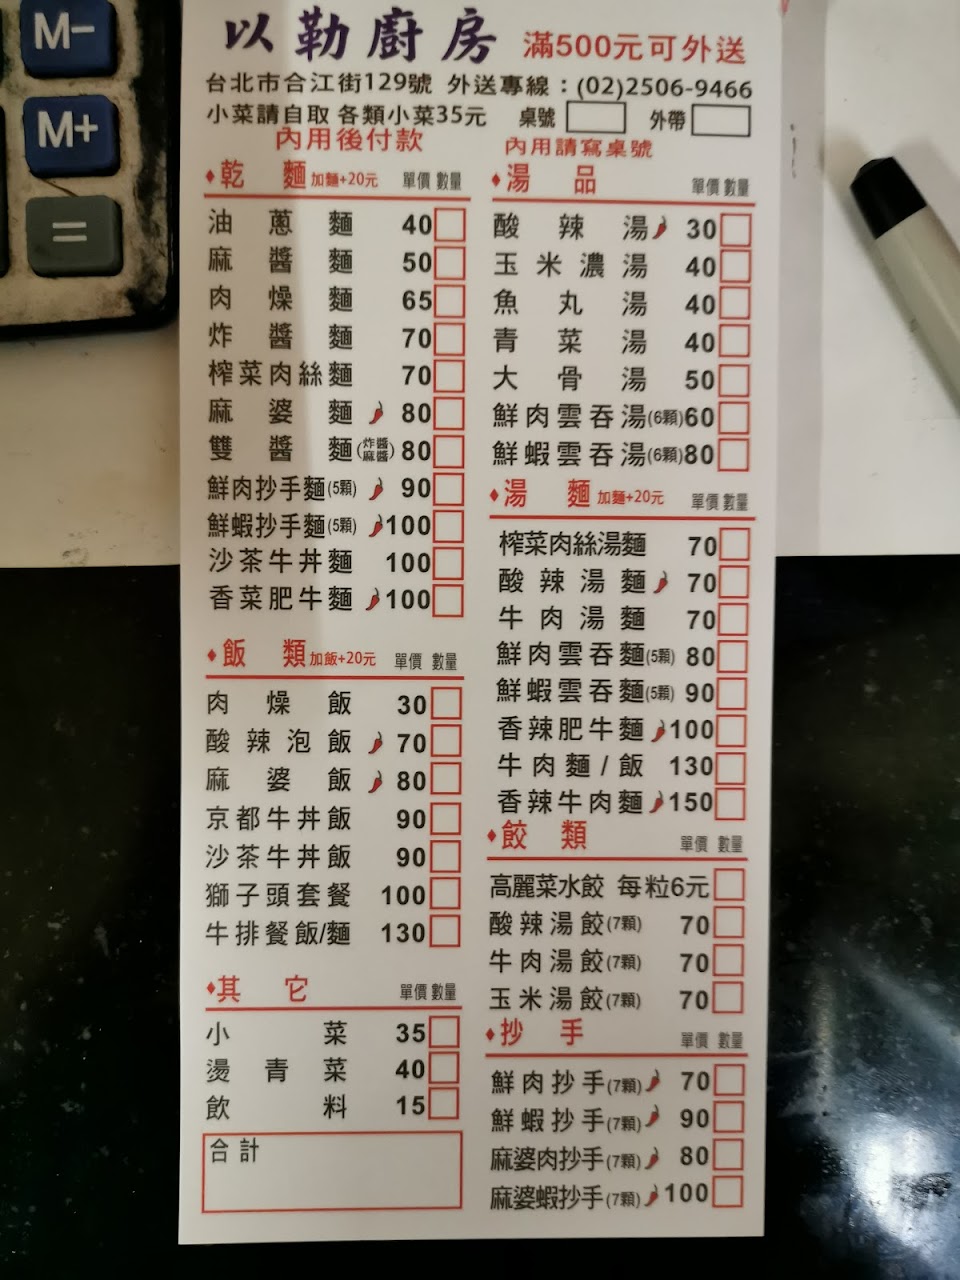 M-
M+
=
以勒廚房 滿500元可外送
台北市合江街129號 外送專線：(02)2506-9466
小菜請自取 各類小菜35元 桌號 外帶
內用後付款 內用請寫桌號
♦乾麵 加麵+20元 單價 數量
油蔥麵 40
麻醬麵 50
肉燥麵 65
炸醬麵 70
榨菜肉絲麵 70
麻婆麵 80
雙醬麵(炸醬麻醬) 80
鮮肉抄手麵(5顆) 90
鮮蝦抄手麵(5顆) 100
沙茶牛丼麵 100
香菜肥牛麵 100
♦飯類 加飯+20元 單價 數量
肉燥飯 30
酸辣泡飯 70
麻婆飯 80
京都牛丼飯 90
沙茶牛丼飯 90
獅子頭套餐 100
牛排餐飯/麵 130
♦其它 單價 數量
小菜 35
燙青菜 40
飲料 15
合計
♦湯品 單價 數量
酸辣湯 30
玉米濃湯 40
魚丸湯 40
青菜湯 40
大骨湯 50
鮮肉雲吞湯(6顆) 60
鮮蝦雲吞湯(6顆) 80
♦湯麵 加麵+20元 單價 數量
榨菜肉絲湯麵 70
酸辣湯麵 70
牛肉湯麵 70
鮮肉雲吞麵(5顆) 80
鮮蝦雲吞麵(5顆) 90
香辣肥牛麵 100
牛肉麵/飯 130
香辣牛肉麵 150
♦餃類 單價 數量
高麗菜水餃 每粒6元
酸辣湯餃(7顆) 70
牛肉湯餃(7顆) 70
玉米湯餃(7顆) 70
♦抄手 單價 數量
鮮肉抄手(7顆) 70
鮮蝦抄手(7顆) 90
麻婆肉抄手(7顆) 80
麻婆蝦抄手(7顆) 100